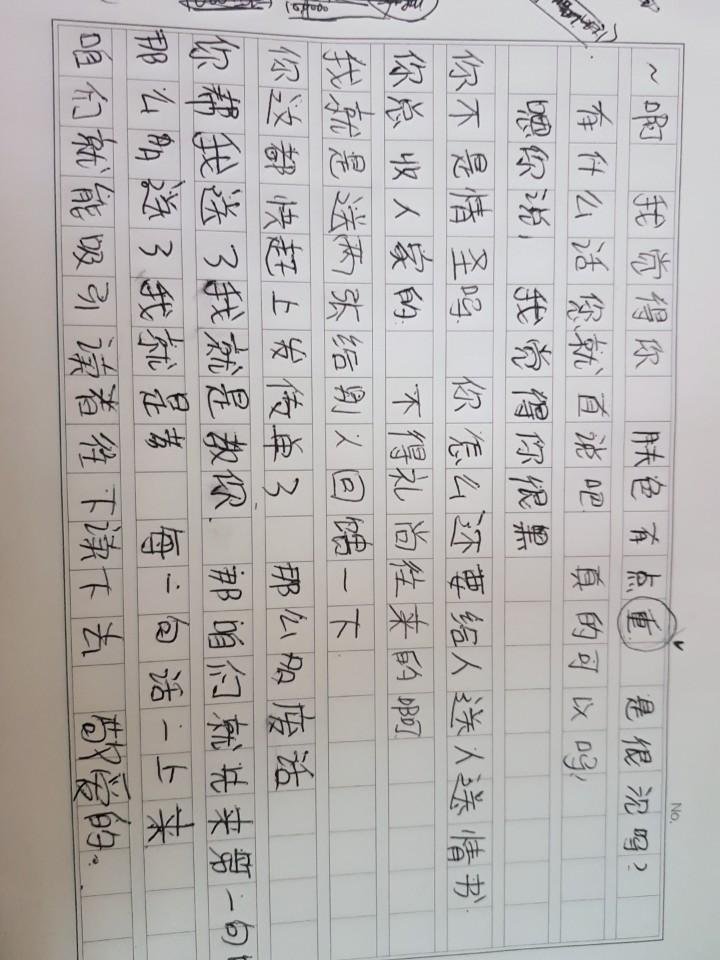 No.
~啊 我觉得你 肤色有点重 是很沉吗?
有什么话您就直说吧 真的可以吗,
嗯你说, 我觉得你很黑
你不是情圣吗 你怎么还要给人送人送情书.
你总收人家的. 不得礼尚往来的啊
我就是送两张给别人回馈一下
你这都快赶上发传单了. 那么多废话
你帮我送了我就是教你. 那咱们就先来第一句
那么多送了我就是 每一句话一上来
咱们就能吸引读者往下读下去 的.